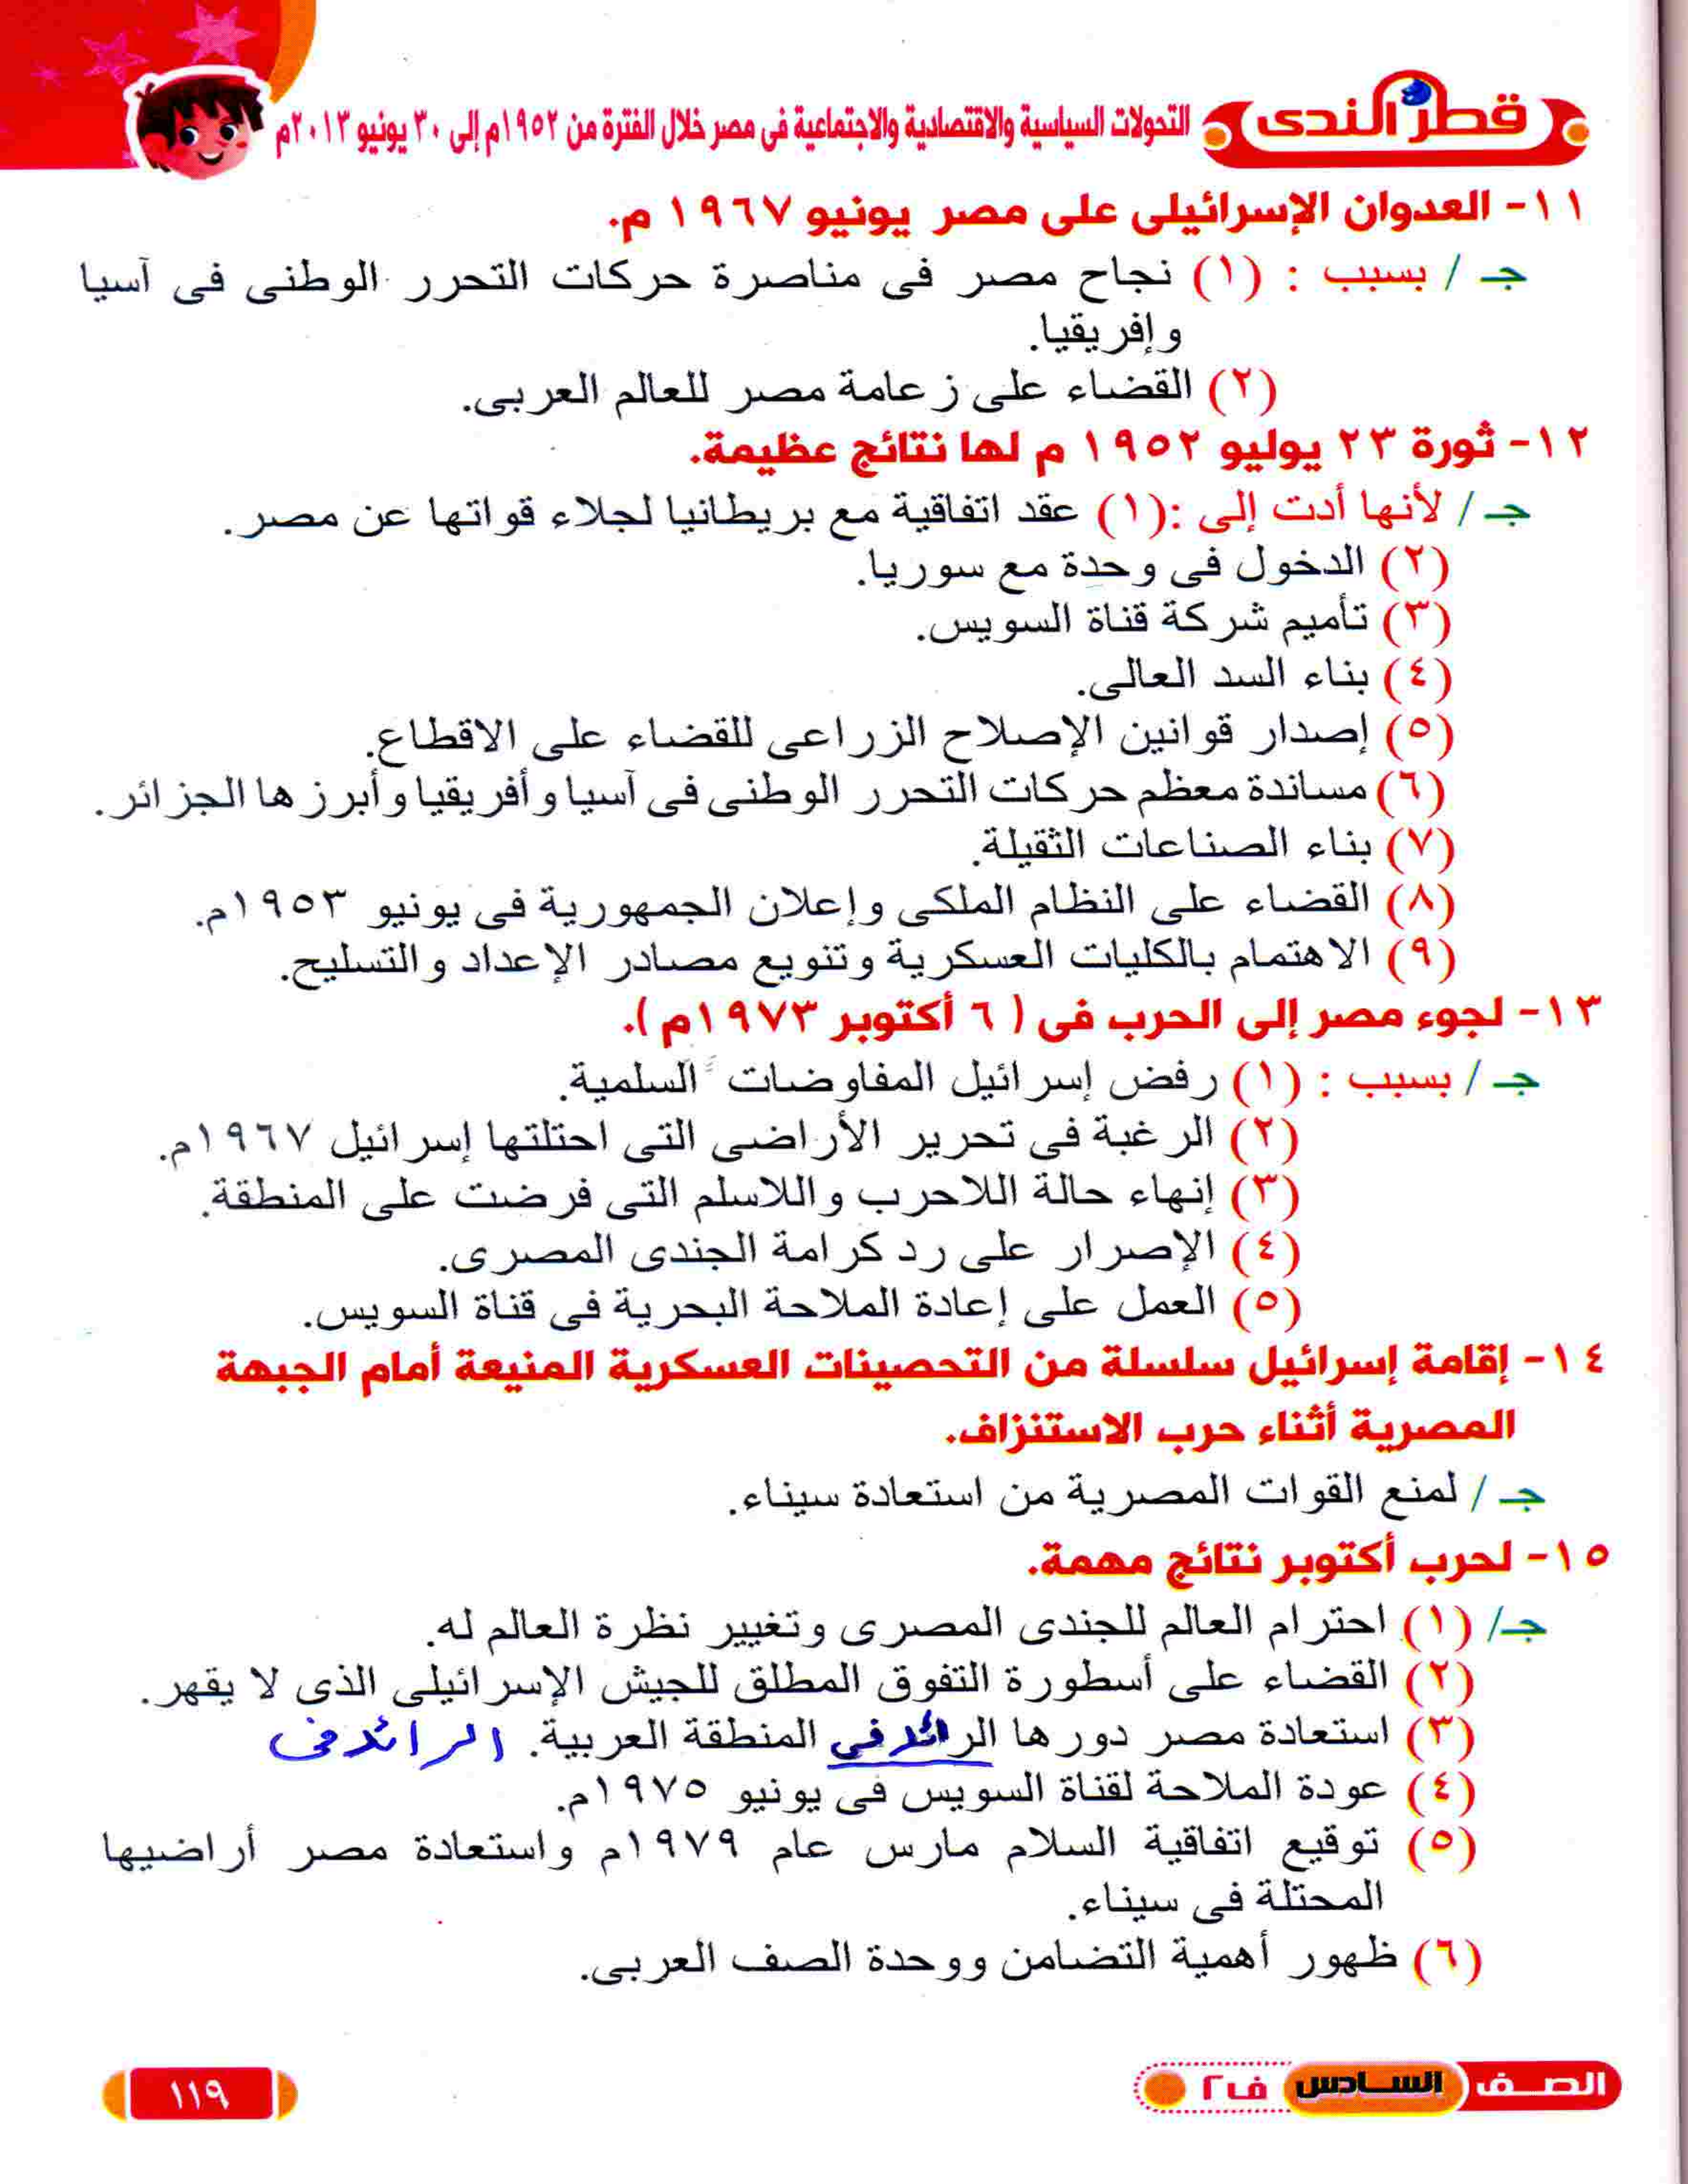 قطر الندى
التحولات السياسية والاقتصادية والاجتماعية فى مصر خلال الفترة من ١٩٥٢م إلى ٣٠ يونيو ٢٠١٣م
١١- العدوان الإسرائيلى على مصر يونيو ١٩٦٧ م.
جـ / بسبب : (١) نجاح مصر فى مناصرة حركات التحرر الوطنى فى آسيا
وإفريقيا.
(٢) القضاء على زعامة مصر للعالم العربى.
١٢- ثورة ٢٣ يوليو ١٩٥٢ م لها نتائج عظيمة.
جـ / لأنها أدت إلى :(١) عقد اتفاقية مع بريطانيا لجلاء قواتها عن مصر.
(٢) الدخول فى وحدة مع سوريا.
(٣) تأميم شركة قناة السويس.
(٤) بناء السد العالى.
(٥) إصدار قوانين الإصلاح الزراعى للقضاء على الاقطاع.
(٦) مساندة معظم حركات التحرر الوطنى فى آسيا وأفريقيا وأبرزها الجزائر.
(٧) بناء الصناعات الثقيلة.
(٨) القضاء على النظام الملكى وإعلان الجمهورية فى يونيو ١٩٥٣م.
(٩) الاهتمام بالكليات العسكرية وتنويع مصادر الإعداد والتسليح.
١٣- لجوء مصر إلى الحرب فى ( ٦ أكتوبر ١٩٧٣م ).
جـ / بسبب : (١) رفض إسرائيل المفاوضات السلمية.
(٢) الرغبة فى تحرير الأراضى التى احتلتها إسرائيل ١٩٦٧م.
(٣) إنهاء حالة اللاحرب واللاسلم التى فرضت على المنطقة.
(٤) الإصرار على رد كرامة الجندى المصرى.
(٥) العمل على إعادة الملاحة البحرية فى قناة السويس.
١٤- إقامة إسرائيل سلسلة من التحصينات العسكرية المنيعة أمام الجبهة
المصرية أثناء حرب الاستنزاف.
جـ / لمنع القوات المصرية من استعادة سيناء.
١٥- لحرب أكتوبر نتائج مهمة.
جـ/ (١) احترام العالم للجندى المصرى وتغيير نظرة العالم له.
(٢) القضاء على أسطورة التفوق المطلق للجيش الإسرائيلى الذى لا يقهر.
(٣) استعادة مصر دورها الرائد فى المنطقة العربية. الرائد فى
(٤) عودة الملاحة لقناة السويس فى يونيو ١٩٧٥م.
(٥) توقيع اتفاقية السلام مارس عام ١٩٧٩م واستعادة مصر أراضيها
المحتلة فى سيناء.
(٦) ظهور أهمية التضامن ووحدة الصف العربى.
الصف السادس ف٢
١١٩